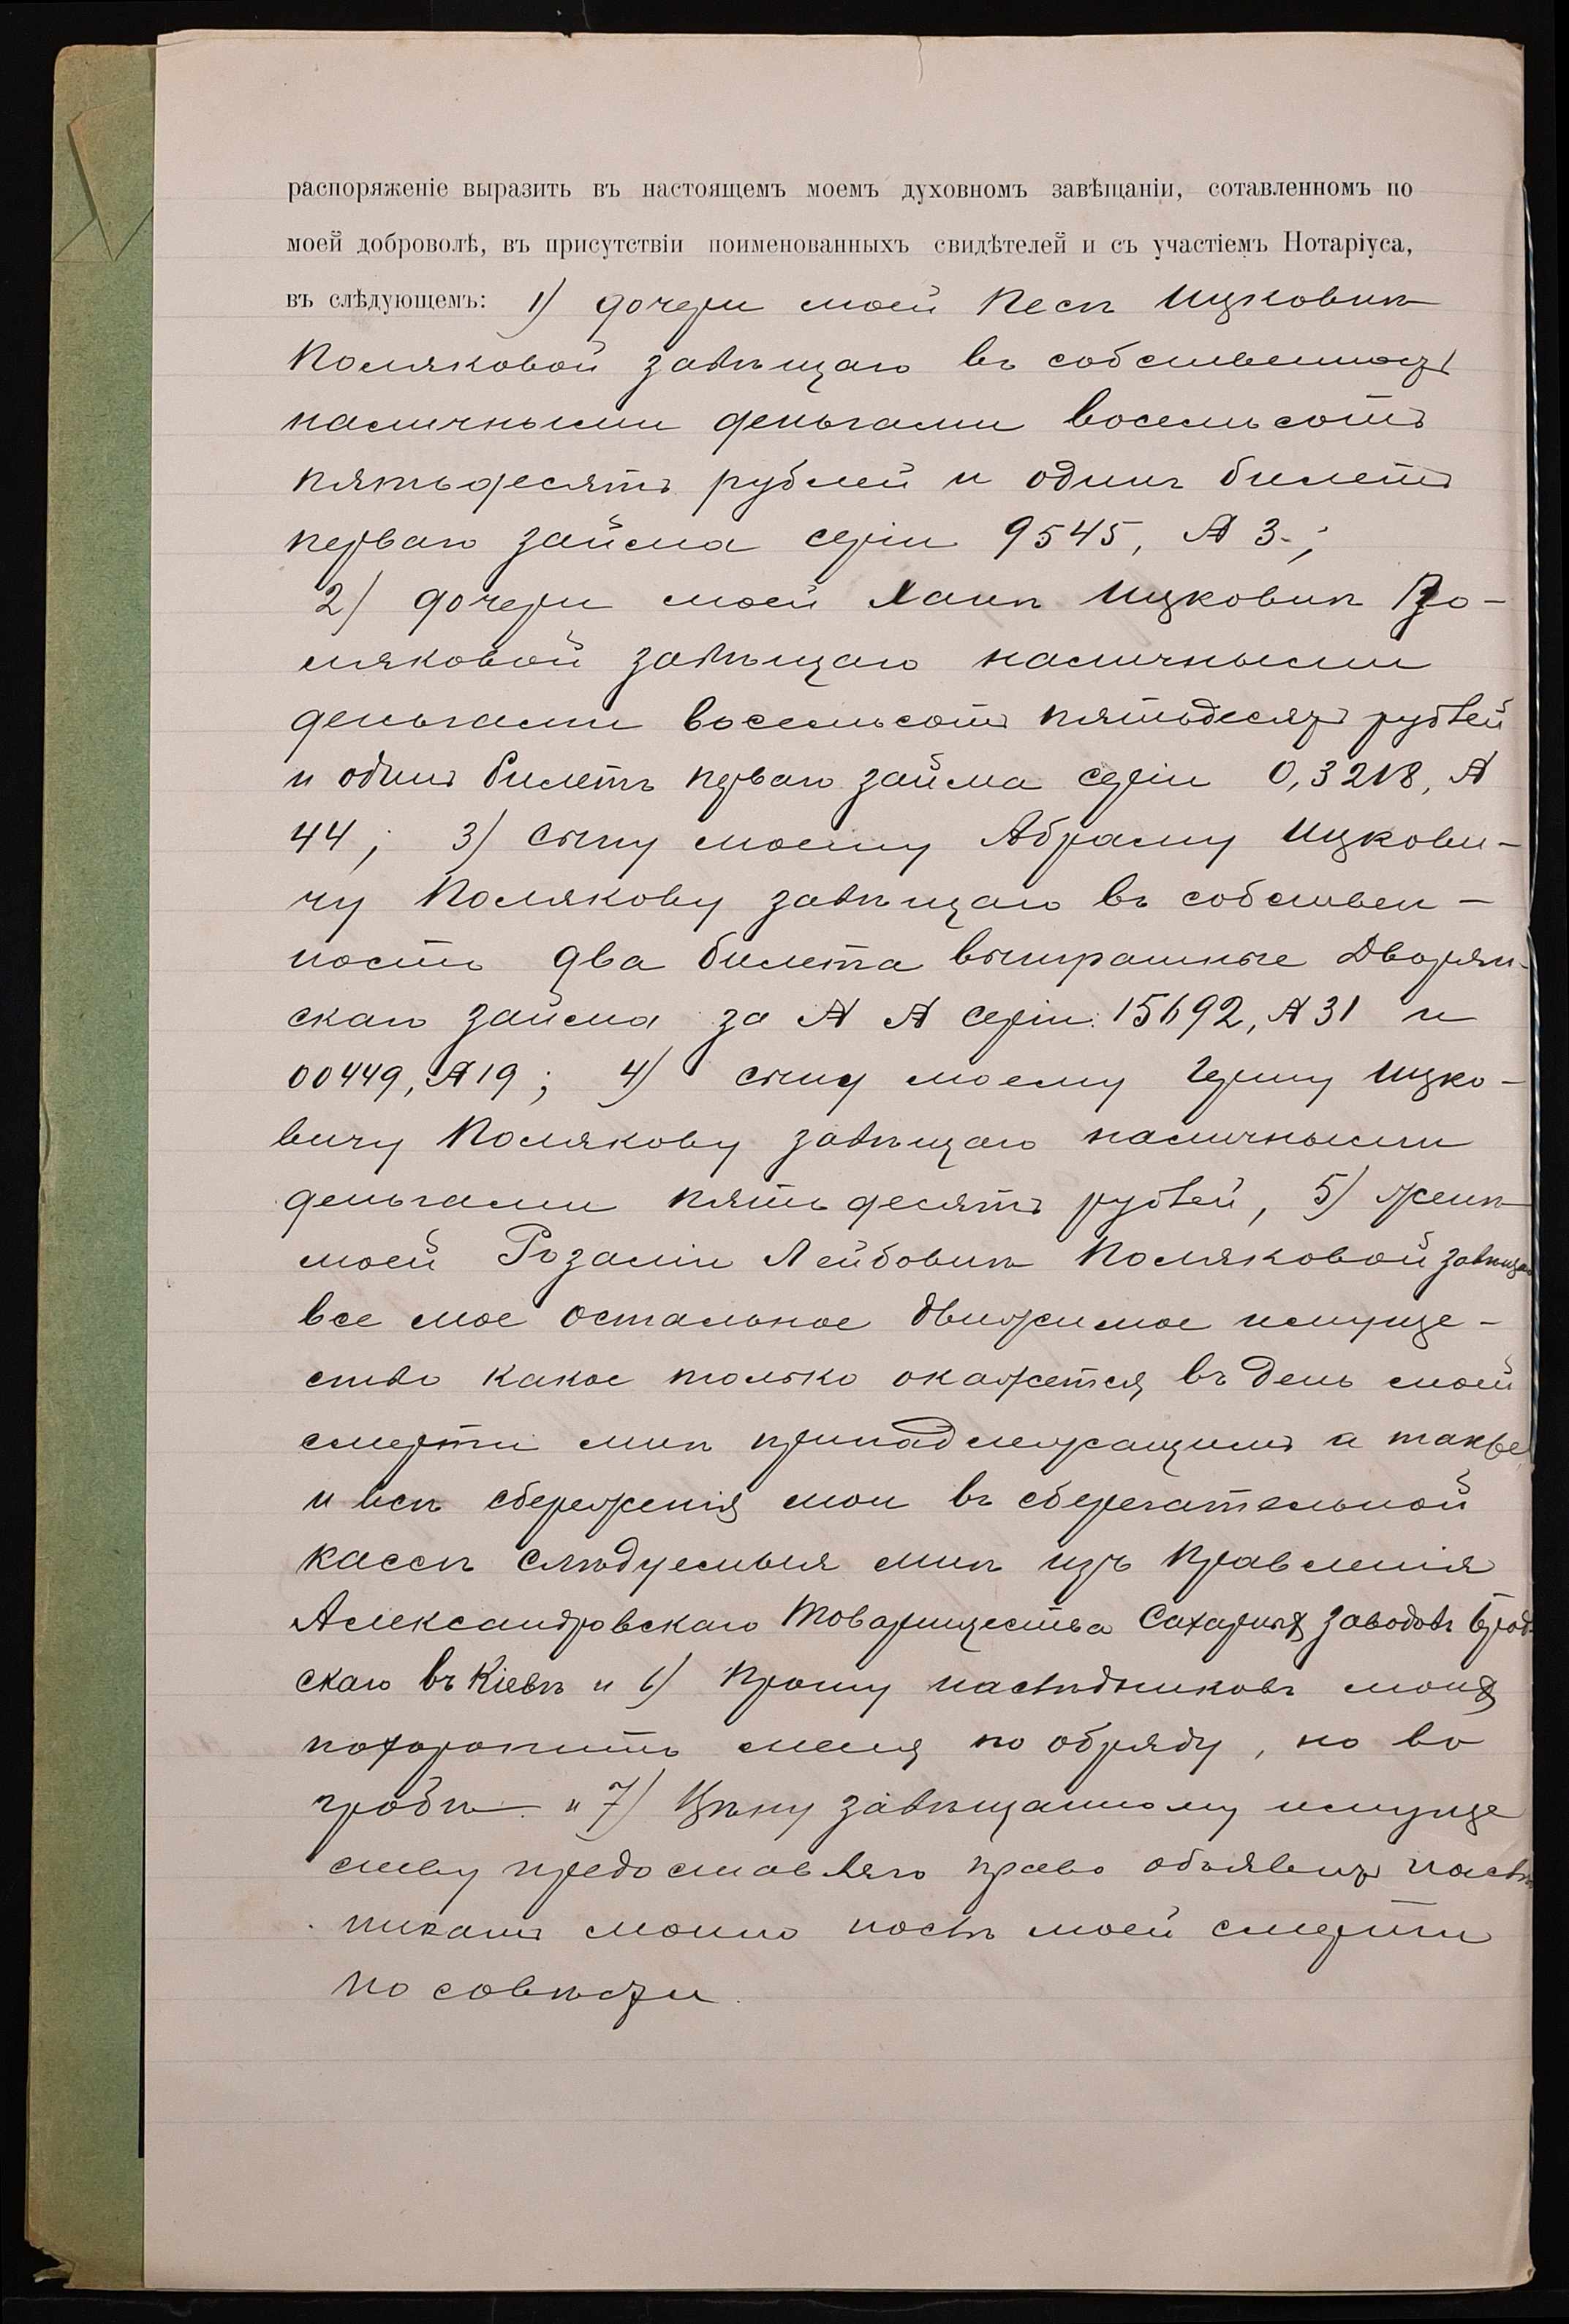 распоряженіе выразить въ настоящемъ моемъ духовномъ завѣщаніи, сотавленномъ по
моей доброволѣ, въ присутствіи поименованныхъ свидѣтелей и съ участіемъ Нотаріуса,
въ слѣдующемъ: 1) дочери моей Песѣ Ицковнѣ
Поляковой завѣщаю въ собственность
наличными деньгами восемьсотъ
пятьдесятъ рублей и одинъ билетъ
перваго займа серіи 9545, № 3.;
2) дочери моей Ханѣ Ицковнѣ По-
ляковой завѣщаю наличными
деньгами восемьсотъ пятьдесятъ рублей
и одинъ билетъ перваго займа серіи 0,3218, №
44; 3) сыну моему Абраму Ицкови-
чу Полякову завѣщаю въ собствен-
ность два билета выиграшные Дворян-
скаго займа за № № серіи: 15692, № 31 и
00449, № 19; 4) сыну моему Гершу Ицко-
вичу Полякову завѣщаю наличными
деньгами пятьдесятъ рублей, 5) женѣ
моей Розаліи Лейбовнѣ Поляковой завѣщаю
все мое остальное движимое имуще-
ство какое только окажется въ день моей
смерти мнѣ принадлежащимъ а также
и всѣ сбереженія мои въ сберегательной
кассѣ слѣдуемыя мнѣ изъ Правленія
Александровскаго Товарищества Сахарныхъ заводовъ Брод-
скаго въ Кіевѣ и 6) Прошу наслѣдниковъ моихъ
похоронить меня по обряду, но во
гробѣ и 7) Цѣну завѣщанному имуще
ству предоставляю право объявить наслѣд
никамъ моимъ послѣ моей смерти
по совѣсти.